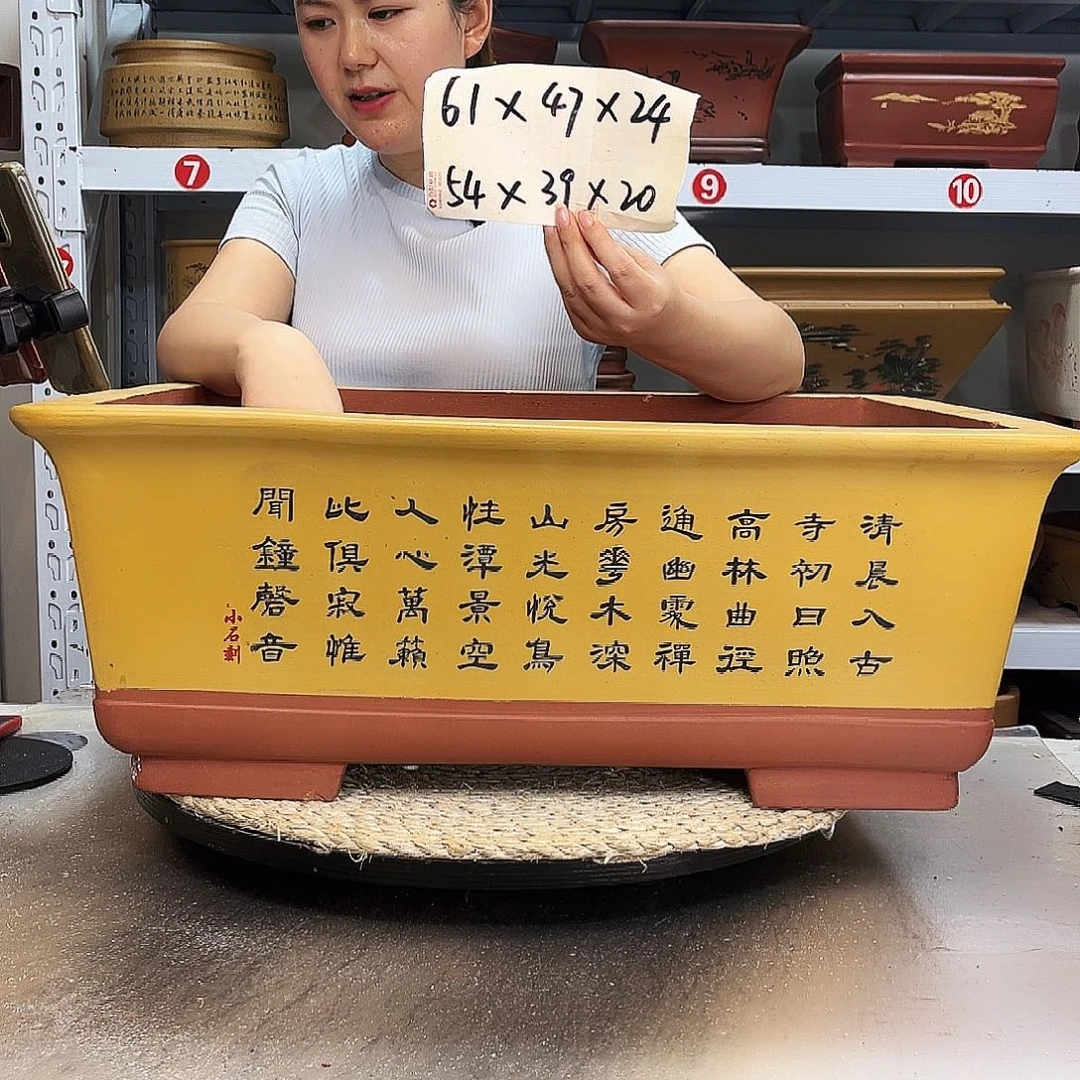 61×47×24
54×39×20
7
9
10
清晨入古
寺初日照
高林曲徑
通幽處禪
房華木深
山光悅鳥
性潭景空
人心萬籟
此俱寂惟
聞鐘磬音
小石刻